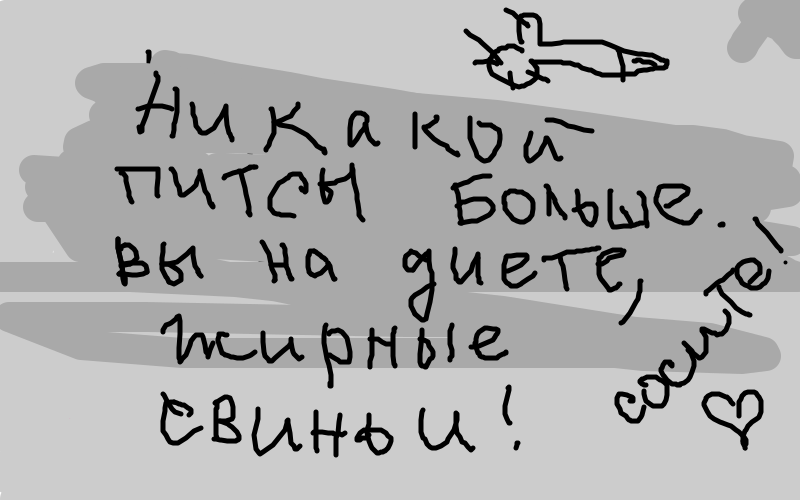 Никакой
питсы больше.
вы на диете,
жирные
свиньи!
сосите!